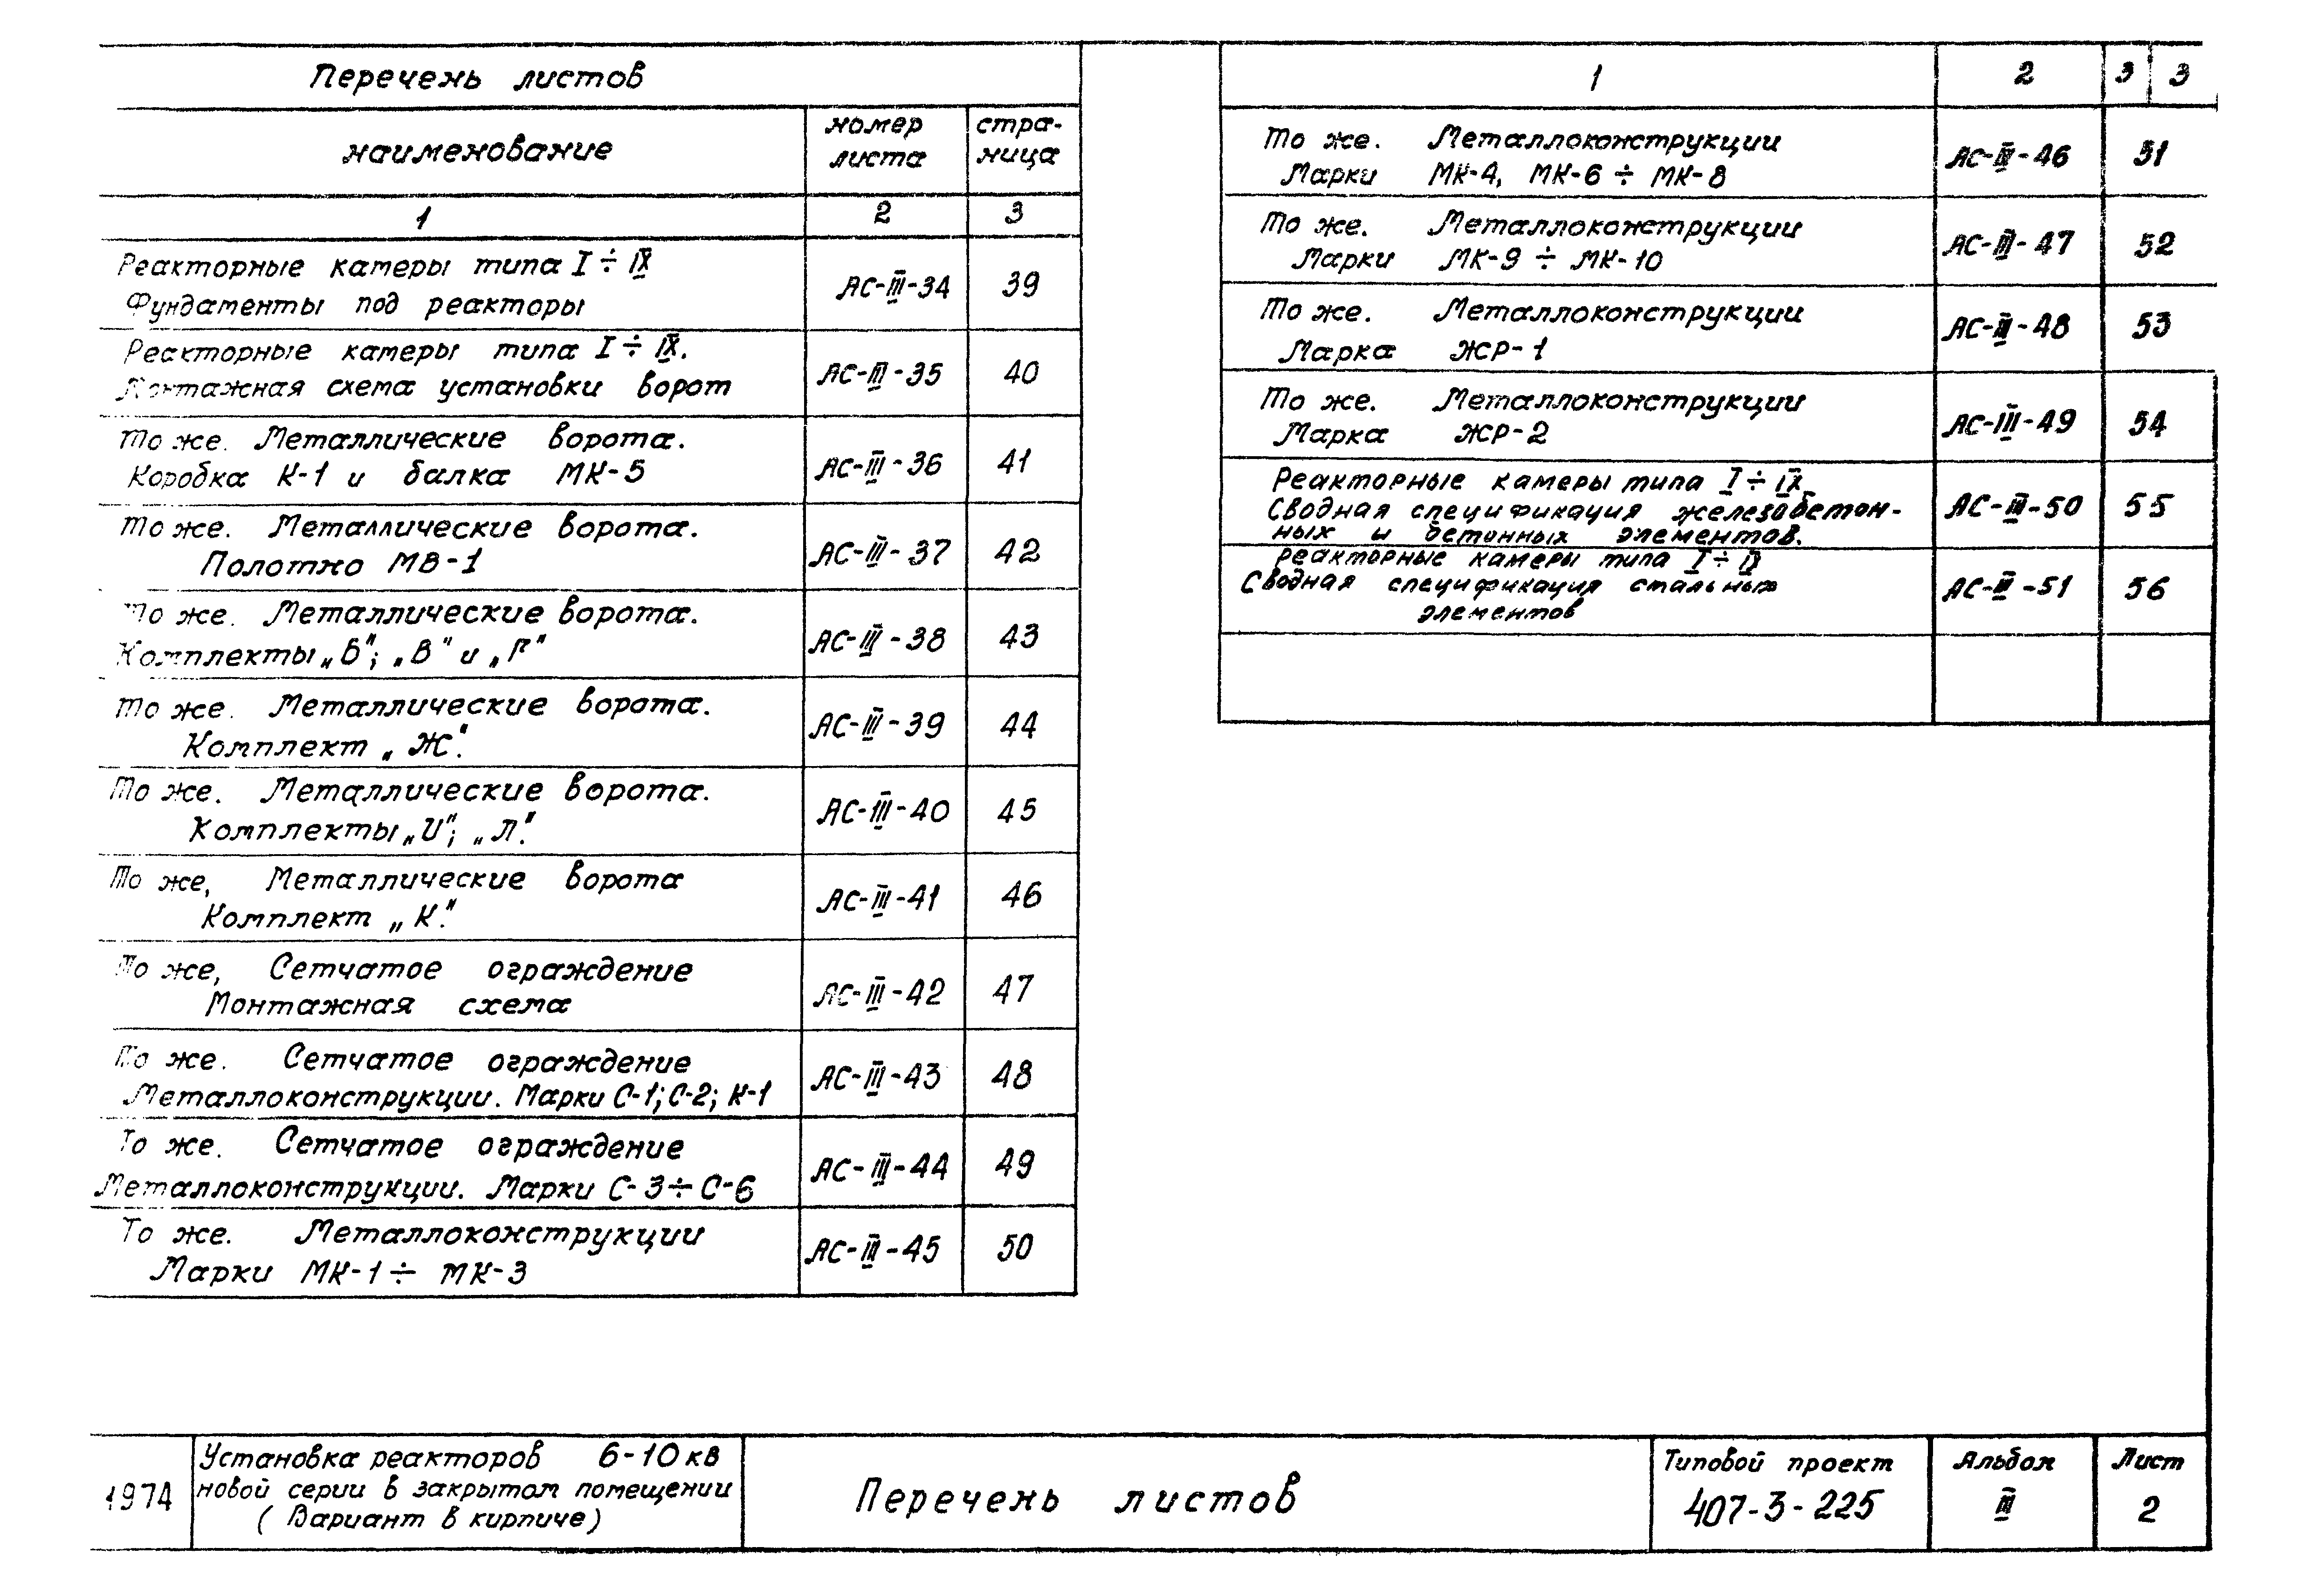 Перечень листов
наименование
номер листа
стра-ница
1 2 3
Реакторные камеры типа I÷IX
Фундаменты под реакторы
АС-III-34 39
Реакторные камеры типа I÷IX.
Монтажная схема установки ворот
АС-III-35 40
То же. Металлические ворота.
Коробка К-1 и балка МК-5
АС-III-36 41
То же. Металлические ворота.
Полотно МВ-1
АС-III-37 42
То же. Металлические ворота.
Комплекты „Б"; „В" и „Г"
АС-III-38 43
То же. Металлические ворота.
Комплект „Ж".
АС-III-39 44
То же. Металлические ворота.
Комплекты „И"; „Л".
АС-III-40 45
То же, Металлические ворота
Комплект „К".
АС-III-41 46
То же, Сетчатое ограждение
Монтажная схема
АС-III-42 47
То же. Сетчатое ограждение
Металлоконструкции. Марки С-1; С-2; К-1
АС-III-43 48
То же. Сетчатое ограждение
Металлоконструкции. Марки С-3÷С-6
АС-III-44 49
То же. Металлоконструкции
Марки МК-1÷ МК-3
АС-III-45 50
1 2 3 3
То же. Металлоконструкции
Марки МК-4, МК-6 ÷ МК-8
АС-III-46 51
То же. Металлоконструкции
Марки МК-9 ÷ МК-10
АС-III-47 52
То же. Металлоконструкции
Марка ЖР-1
АС-III-48 53
То же. Металлоконструкции
Марка ЖР-2
АС-III-49 54
Реакторные камеры типа I÷IX.
Сводная спецификация железобетон-
ных и бетонных элементов.
АС-III-50 55
Реакторные камеры типа I÷IX
Сводная спецификация стальных
элементов
АС-III-51 56
1974
Установка реакторов 6-10 кв
новой серии в закрытом помещении
(Вариант в кирпиче)
Перечень листов
Типовой проект
407-3-225
Альбом
III
Лист
2